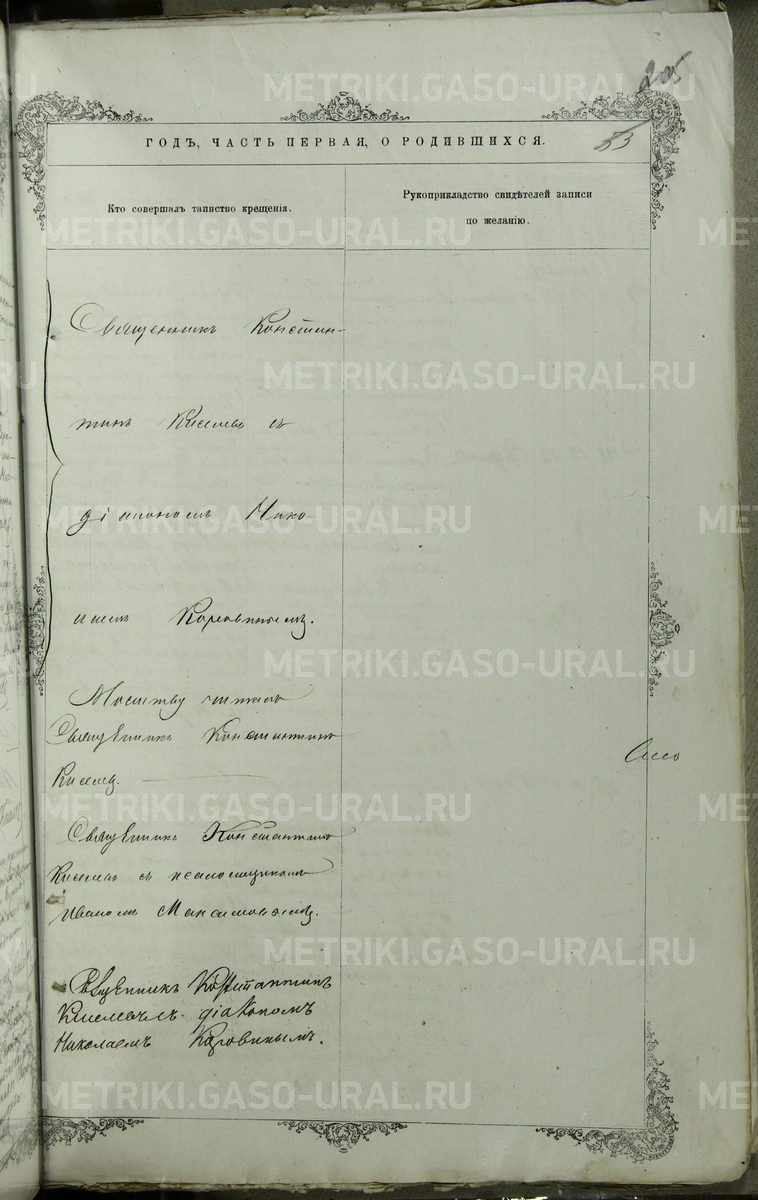 205
53
ГОДЪ, ЧАСТЬ ПЕРВАЯ, О РОДИВШИХСЯ.
Кто совершалъ таинство крещенія.
Рукоприкладство свидѣтелей записи
по желанію.
Священникъ Констан-
тинъ Киселевъ съ
діакономъ Нико-
лаемъ Коровинымъ.
Молитву читалъ
Священникъ Константинъ
Киселевъ.
Священникъ Константинъ
Киселевъ съ псаломщикомъ
Иваномъ Максимовымъ.
Священникъ Константинъ
Киселевъ съ діакономъ
Николаемъ Коровинымъ.
METRIKI.GASO-URAL.RU